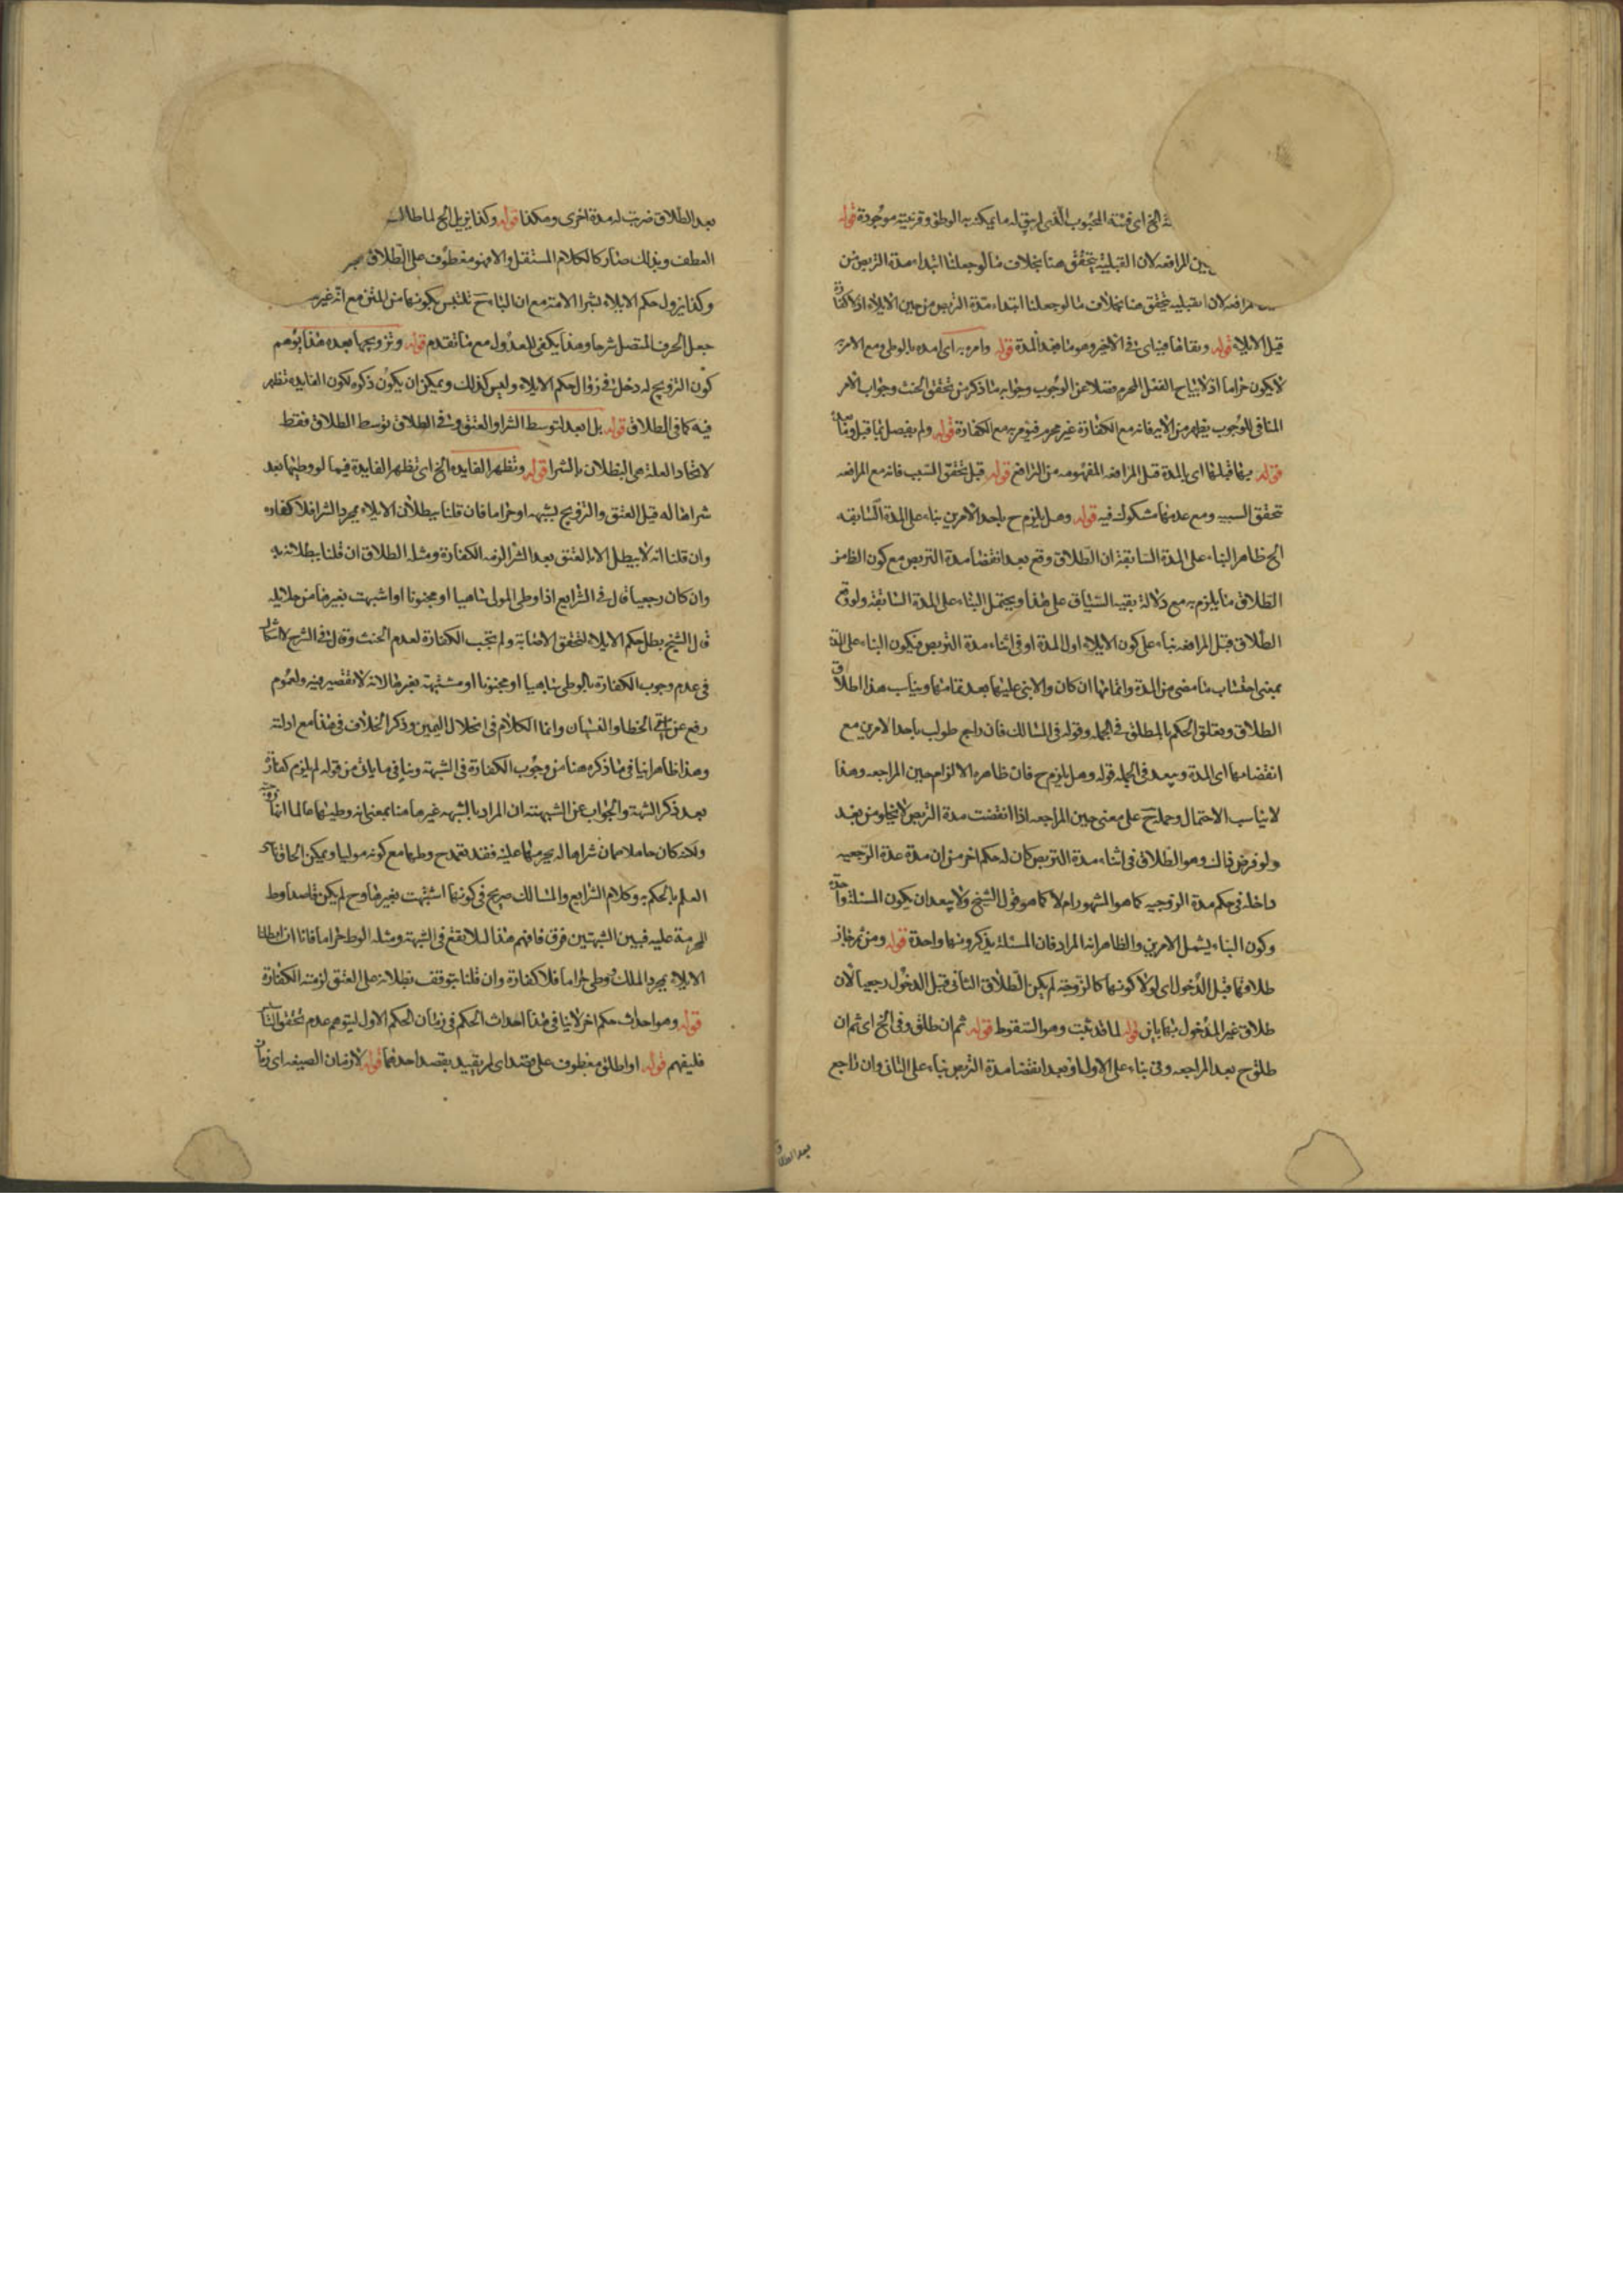 الخ اى فئة المجبوب الذى لم يبق له ما يمكنه به الوطؤ وقرينته موجودة قوله
حين المرافعه لان القبلية يتحقق هنا بخلاف ما لو جعلنا ابتداء مدة التربص من
المرافعه لان القبليه يتحقق هنا بخلاف ما لو جعلنا ابتداء مدة التربص من حين الايلاء اذ لا كفارة
قبل الايلاء قوله وبقائها فينا فى الاخير وهو ما بعد المدة قوله وامره به اى امره بالوطى ومع الامر به
لا يكون حراما اذ لا يباح الفعل المحرم فضلا عن الوجوب وجوابه ما ذكر من تحقق الحنث وجواب الامر
المنافى للوجوب يظهر من الامر فانه مع الكفارة غير محرم فيؤمر به مع الكفارة قوله ولم يفصل بما قبل وما بعد
قوله بما قبلها اى بالمدة قبل المرافعه المفهومه من الترافع قوله قبل تحقق السبب فانه مع المرافعه
تحقق السببيه ومع عدمها مشكوك فيه قوله وهل يلزم ح باحد الامرين بناء على المدة السابقه
الخ ظاهر البناء على المدة السابقة ان الطلاق وقع بعد انقضاء مدة التربص مع كون الظاهر
الطلاق ما يلزم به مع دلالة بقيه السياق على هذا ويحتمل البناء على المدة السابقة ولو وقع
الطلاق قبل المرافعه بناء على كون الايلاء اول المدة او فى اثناء مدة التربص فيكون البناء على المدة
بمعنى احتساب ما مضى من المدة واتمامها ان كان والا بنى عليها بعد تمامها ويناسب هذا اطلاق
الطلاق وتعلق الحكم بالمطلق فى الجمله وقوله فى المسالك فان راجع طولب باحد الامرين مع
انقضائها اى المدة ويبعد فى الجمله قوله وهل يلزم ح فان ظاهره الالزام حين المراجعه وهذا
لا يناسب الاحتمال وحمله ح على معنى حين المراجعه اذا انقضت مدة التربص لا يخلو من بعد
ولو فرض ذلك وهو الطلاق فى اثناء مدة التربص كان له حكم اخر من ان مدة عدة الرجعيه
داخله فى حكم مدة الزوجيه كما هو المشهور ام لا كما هو قول الشيخ ولا يبعد ان يكون المسئلة واحدة
وكون البناء يشمل الامرين والظاهر انه المراد فان المسئلة يذكرونها واحدة قوله ومن ثم جاز
طلاقها قبل الدخول اى لو لا كونها كالزوجة لم يكن الطلاق الثانى قبل الدخول رجعيا لان
طلاق غير المدخول بها باين قوله لما قد ثبت وهو السقوط قوله ثم ان طلق وفى الخ اى ثم ان
طلق ح بعد المراجعه وفى بناء على الاول او بعد انقضاء مدة التربص بناء على الثانى وان راجع
بعد الطلاق
بعد الطلاق ضربت له مدة اخرى وهكذا قوله وكذا يزيل الخ لما طال
العطف وبذلك صار كالكلام المستقل والا فهو معطوف على الطلاق
وكذا يزول حكم الايلاء بشراء الامة مع ان الباء ح تلتبس بكونها من المتن مع انه غير
جعل الحرف المتصل شرحا وهذا يكفى للعدول مع ما تقدم قوله وتزويجها بعده هذا يوهم
كون التزويج له دخل فى زوال حكم الايلاء وليس كذلك ويمكن ان يكون ذكره لكون الفايده تظهر
فيه كما فى الطلاق قوله بل بعد لتوسط الشرا والعتق وفى الطلاق توسط الطلاق فقط
لاتحاد العلة هى البطلان بالشرا قوله وتظهر الفايده الخ اى تظهر الفايدة فيما لو وطئها بعد
شرائها له قبل العتق والتزويج بشبهه او حراما فان قلنا ببطلان الايلاء بمجرد الشرا فلا كفاره
وان قلنا انه لا يبطل الا بالعتق بعد الشرا لزمه الكفارة ومثله الطلاق ان قلنا ببطلانه به
وان كان رجعيا قال فى الشرايع اذا وطى المولى ساهيا او مجنونا او اشبهت بغيرها من حلائله
قال الشيخ بطل حكم الايلاء لتحقق الاصابة ولم تجب الكفارة لعدم الحنث وقال فى الشرح لا اشكال
فى عدم وجوب الكفارة بالوطى ساهيا او مجنونا او مشتبهة بغيرها لانه لا تقصير فيه ولعموم
رفع عن امتى الخطا والنسيان وانما الكلام فى انحلال اليمين وذكر الخلاف فى هذا مع ادلته
وهذا ظاهرا ينافى ما ذكره هنا من وجوب الكفارة فى الشبهة وينافى ما ياتى من قوله لم يلزم كفارة
بعد ذكر الشبهة والجواب عن الشبهتة ان المراد بالشبهه غير ما هنا بمعنى انه وطئها عالما انها زوجته
ولكنه كان جاهلا بان شراها له يحرمها عليه فقد تعمد ح وطيها مع كونه موليا ويمكن الحاق
العلم بالحكم به وكلام الشرايع والمسالك صريح فى كونها اشتبهت بغيرها وح لم يكن قاصدا وط
المحرمة عليه فبين الشبهتين فرق فافهم هذا لئلا تقع فى الشبهة ومثله الوط حراما فانا ان ابطلنا
الايلاء بمجرد الملك وطى حراما فلا كفارة وان قلنا بتوقف بطلانه على العتق لزمته الكفارة
قوله وهو احداث حكم اخر لا ينافى هذا احداث الحكم فى زمان الحكم الاول ليتوهم عدم تحقق التنافى
فليفهم قوله او اطلق معطوف على قصد اى لم يقيد بقصد احدهما قوله لاقتران الصيغه اى